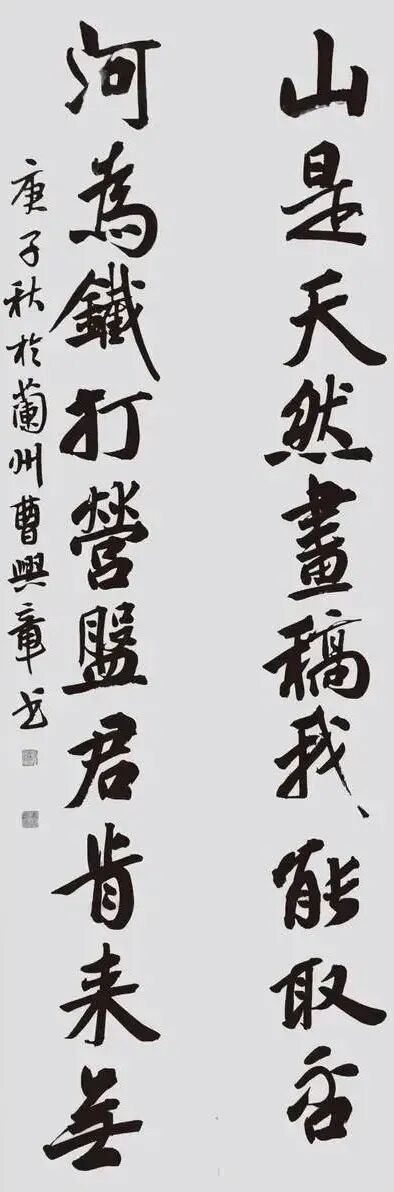 山是天然畫稿我能取否
河為鐵打營盤君肯来無
庚子秋於蘭州曹興章书